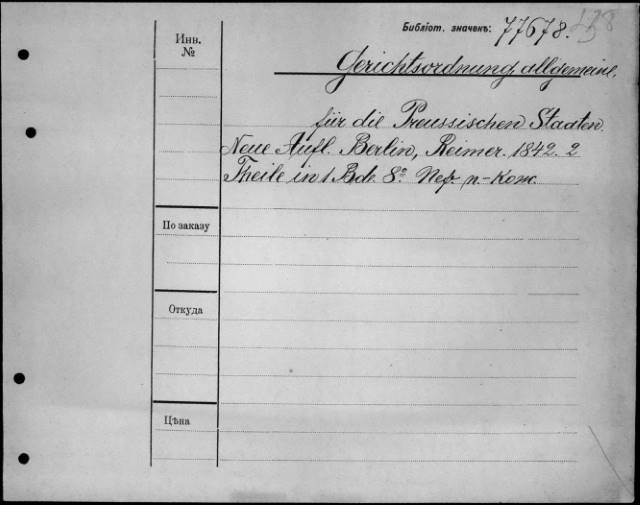 Библіот. значекъ: 77678.
Инв.
№
Gerichtsordnung, allgemeine,
für die Preussischen Staaten.
Neue Aufl. Berlin, Reimer. 1842. 2
Theile in 1 Bd. 8º Пер. п.-кож.
По заказу
Откуда
Цѣна